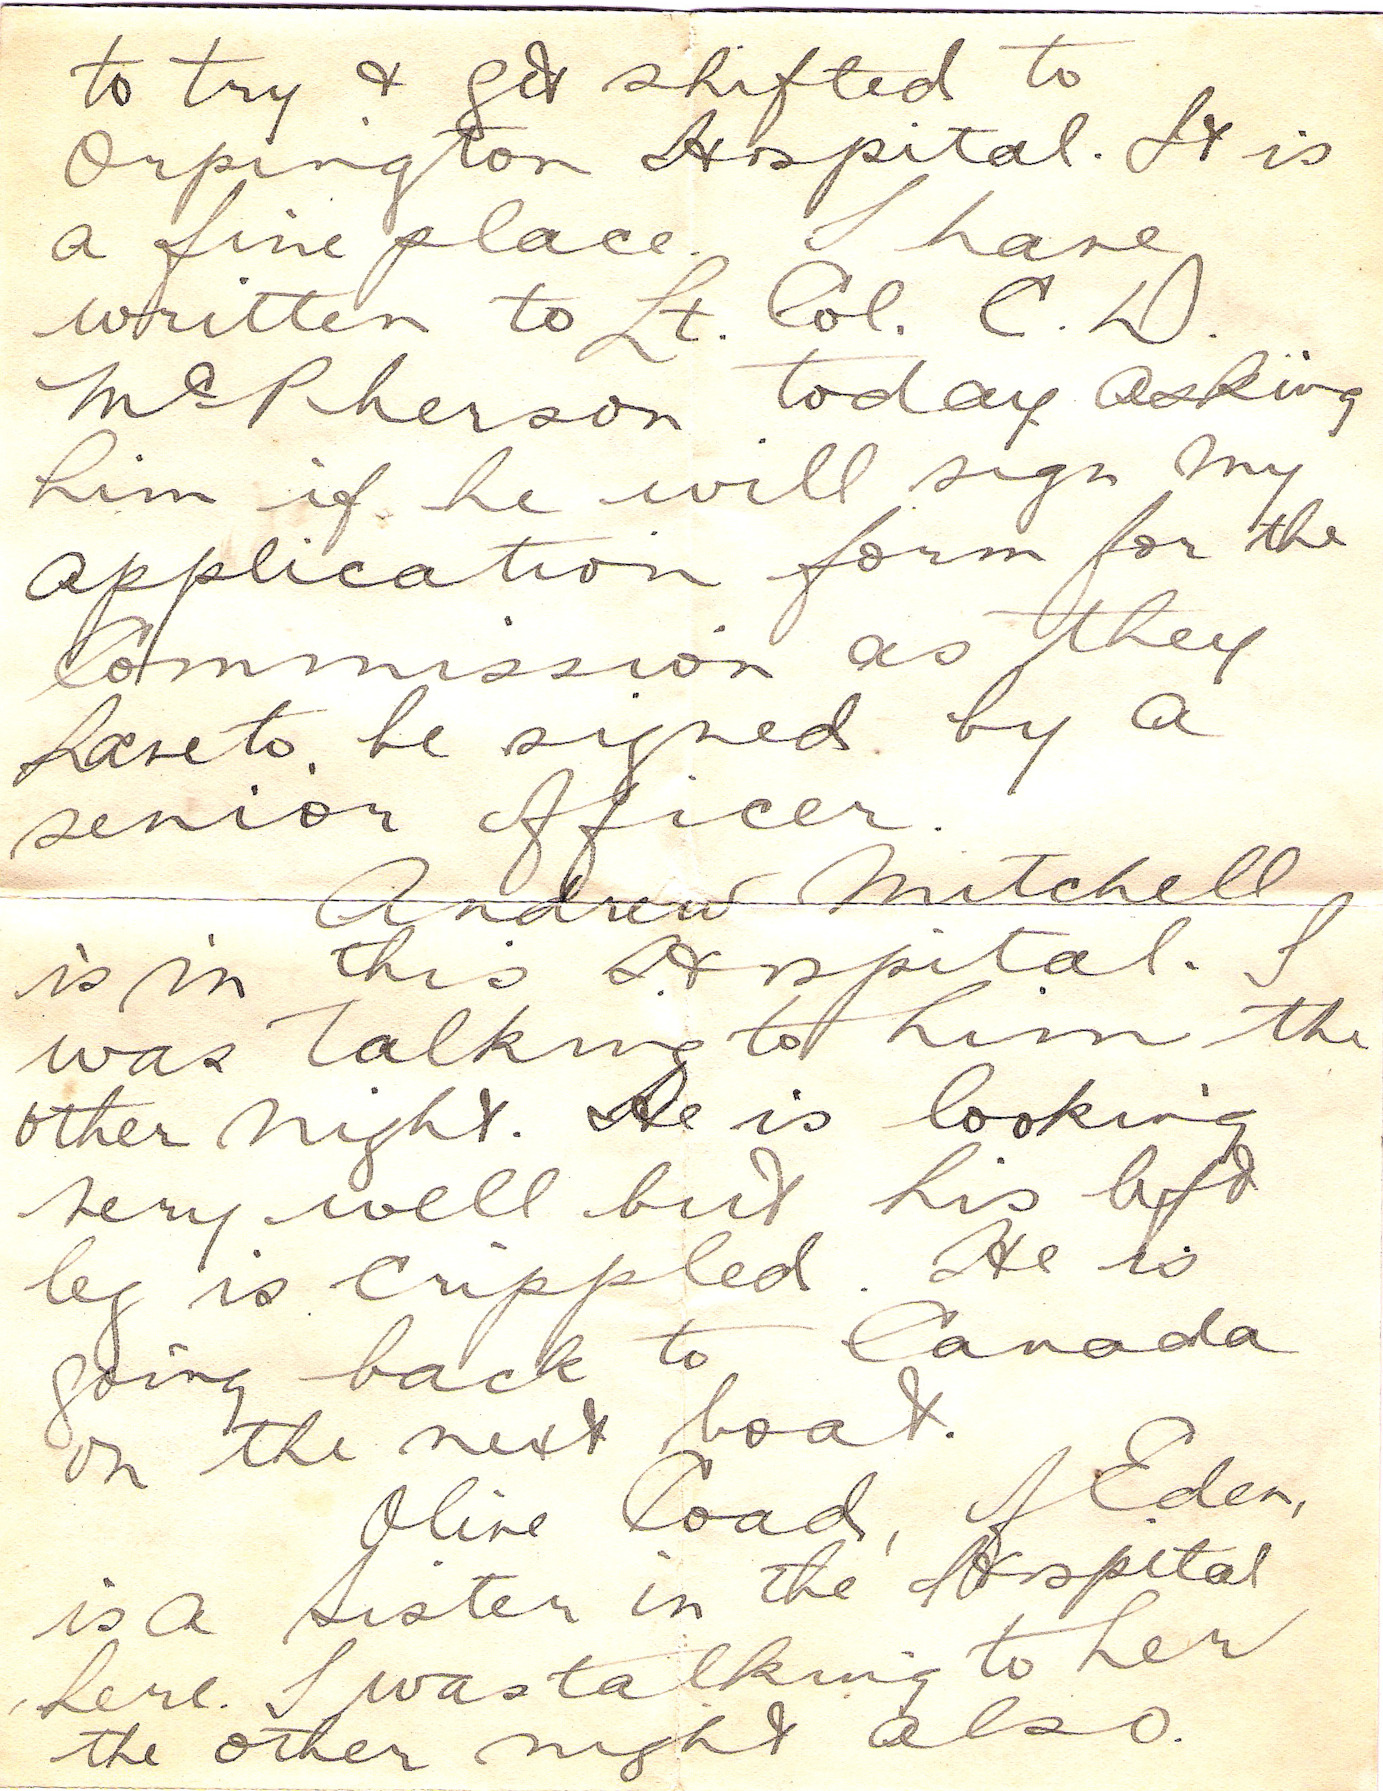 to try & get shifted to
Orpington Hospital. It is
a fine place. I have
written to Lt. Col. C. D.
McPherson today asking
him if he will sign my
application form for the
Commission as they
have to be signed by a
senior officer.
Andrew Mitchell
is in this Hospital. I
was talking to him the
other night. He is looking
very well but his left
leg is crippled. He is
going back to Canada
on the next boat.
Olive Coad, of Eden,
is a Sister in the Hospital
here. I was talking to her
the other night also.